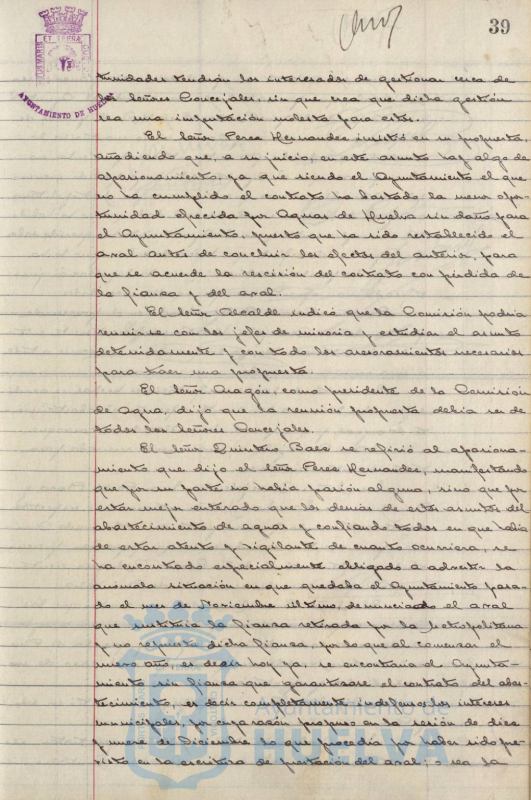 39
tunidades tendrán los interesados de gestionar cerca de
los Señores Concejales, sin que crea que dicha gestión
sea una imputación molesta para estos.
El Señor Perea Hernandez insistió en su propuesta,
añadiendo que, a su juicio, en este asunto hay algo de
apasionamiento, ya que siendo el Ayuntamiento el que
no ha cumplido el contrato ha bastado la menor opor-
tunidad ofrecida por Aguas de Huelva sin daño para
el Ayuntamiento, puesto que ha sido restablecido el
aval antes de concluir los efectos del anterior, para
que se acuerde la rescisión del contrato con pérdida de
la fianza y del aval.
El Señor Alcalde indicó que la Comisión podria
reunirse con los jefes de minoria y estudiar el asunto
detenidamente y con todo los asesoramientos necesarios
para traer una propuesta.
El Señor Aragón, como presidente de la Comisión
de Agua, dijo que la reunión propuesta debia ser de
todos los Señores Concejales.
El Señor Quintero Baez se refirió al apasiona-
miento que dijo el Señor Perea Hernandez, manifestando
que por su parte no habia pasión alguna, sino que por
estar mejor enterado que los demás de estos asuntos del
abastecimiento de aguas y confiando todos en que habia
de estar atento y vigilante de cuanto ocurriera, se
ha encontrado especialmente obligado a advertir la
anómala situación en que quedaba el Ayuntamiento pasa-
do el mes de Noviembre último, denunciado el aval
que sustituia la fianza retirada por la Metropolitana
y no repuesta dicha fianza, por lo que al comenzar el
nuevo año, es decir hoy ya, se encontraria el Ayunta-
miento sin fianza que garantizase el contrato del abas-
tecimiento, es decir completamente indefensos los intereses
municipales, por cuya razón propuso en la sesión de diez
y nueve de Diciembre lo que procedia por haber sido pre-
visto en la escritura de prestación del aval; o sea la
AYUNTAMIENTO DE HUELVA
Ayuntamiento de
HUELVA